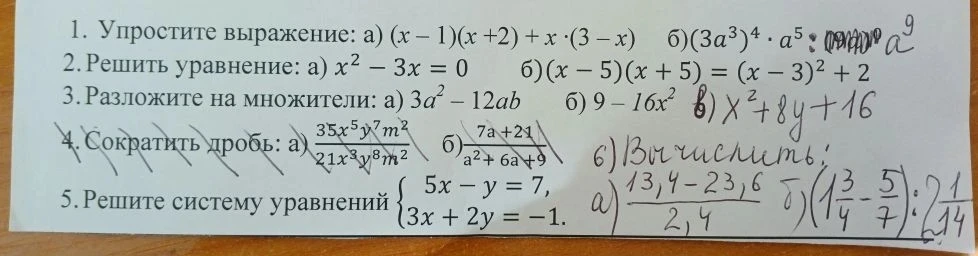 1. Упростите выражение: а) (x − 1)(x +2) + x ·(3 – x) б)(3a³)⁴ · a⁵ : a⁹
2. Решить уравнение: а) x² − 3x = 0 б)(x − 5)(x + 5) = (x − 3)² + 2
3. Разложите на множители: а) 3a² – 12ab б) 9 – 16x² в) x²+8y+16
4. Сократить дробь: а) 35x⁵y⁷m² / 21x³y⁸m² б) 7a +21 / a²+ 6a +9
6) Вычислить:
5. Решите систему уравнений { 5x − y = 7,
3x + 2y = −1.
а) 13,4 – 23,6 / 2,4 б) (1 3/4 – 5/7) : 2 1/14